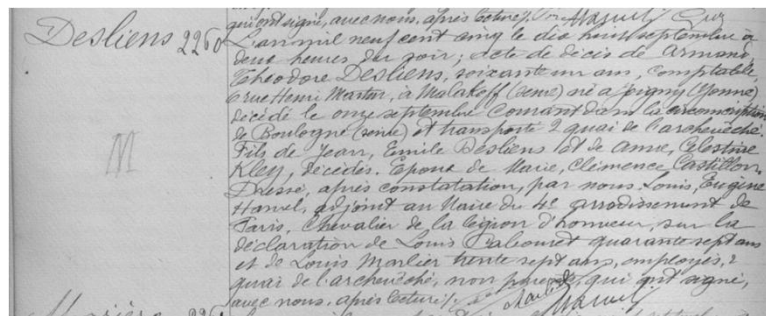 qui ont signé, avec nous, après lecture %.
Desliens 2260
L'an mil neuf cent cinq le dix huit septembre à
deux heures du soir; acte de décès de Armand,
Théodore Desliens, soixante un ans, comptable,
6 rue Henri Martin, à Malakoff (Seine) né à Joigny (Yonne)
décédé le onze septembre courant dans la circonscription
de Boulogne (Seine) et transporté 2 quai de l'archevêché.
Fils de Jean, Emile Desliens et de Anne, Celestine
Kley, décédés. Epoux de Marie, Clémence Castillon.
Dressé, après constatation, par nous Louis, Eugène
Hamel, adjoint au Maire du 4e arrondissement de
Paris, Chevalier de la légion d'honneur, sur la
déclaration de Louis Cabouret quarante sept ans
et de Louis Marlier trente sept ans, employés, 2
quai de l'archevêché, non parents, qui ont signé,
avec nous, après lecture %.
M